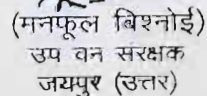 (मनफूल बिश्नोई)
उप वन सरक्षक
जयपुर (उत्तर)